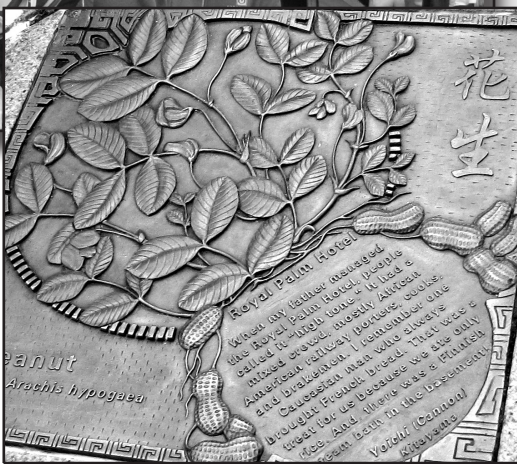 花
生
Royal Palm Hotel
When my father managed
the Royal Palm Hotel, people
called it "high tone." It had a
mixed crowd, mostly African
American railway porters, cooks,
and brakemen. I remember one
Caucasian man who always
brought French bread. That was a
treat for us because we ate only
rice. And, there was a Finnish
eam bath in the basement.
Yoichi (Cannon)
Kitayama
eanut
Arachis hypogaea